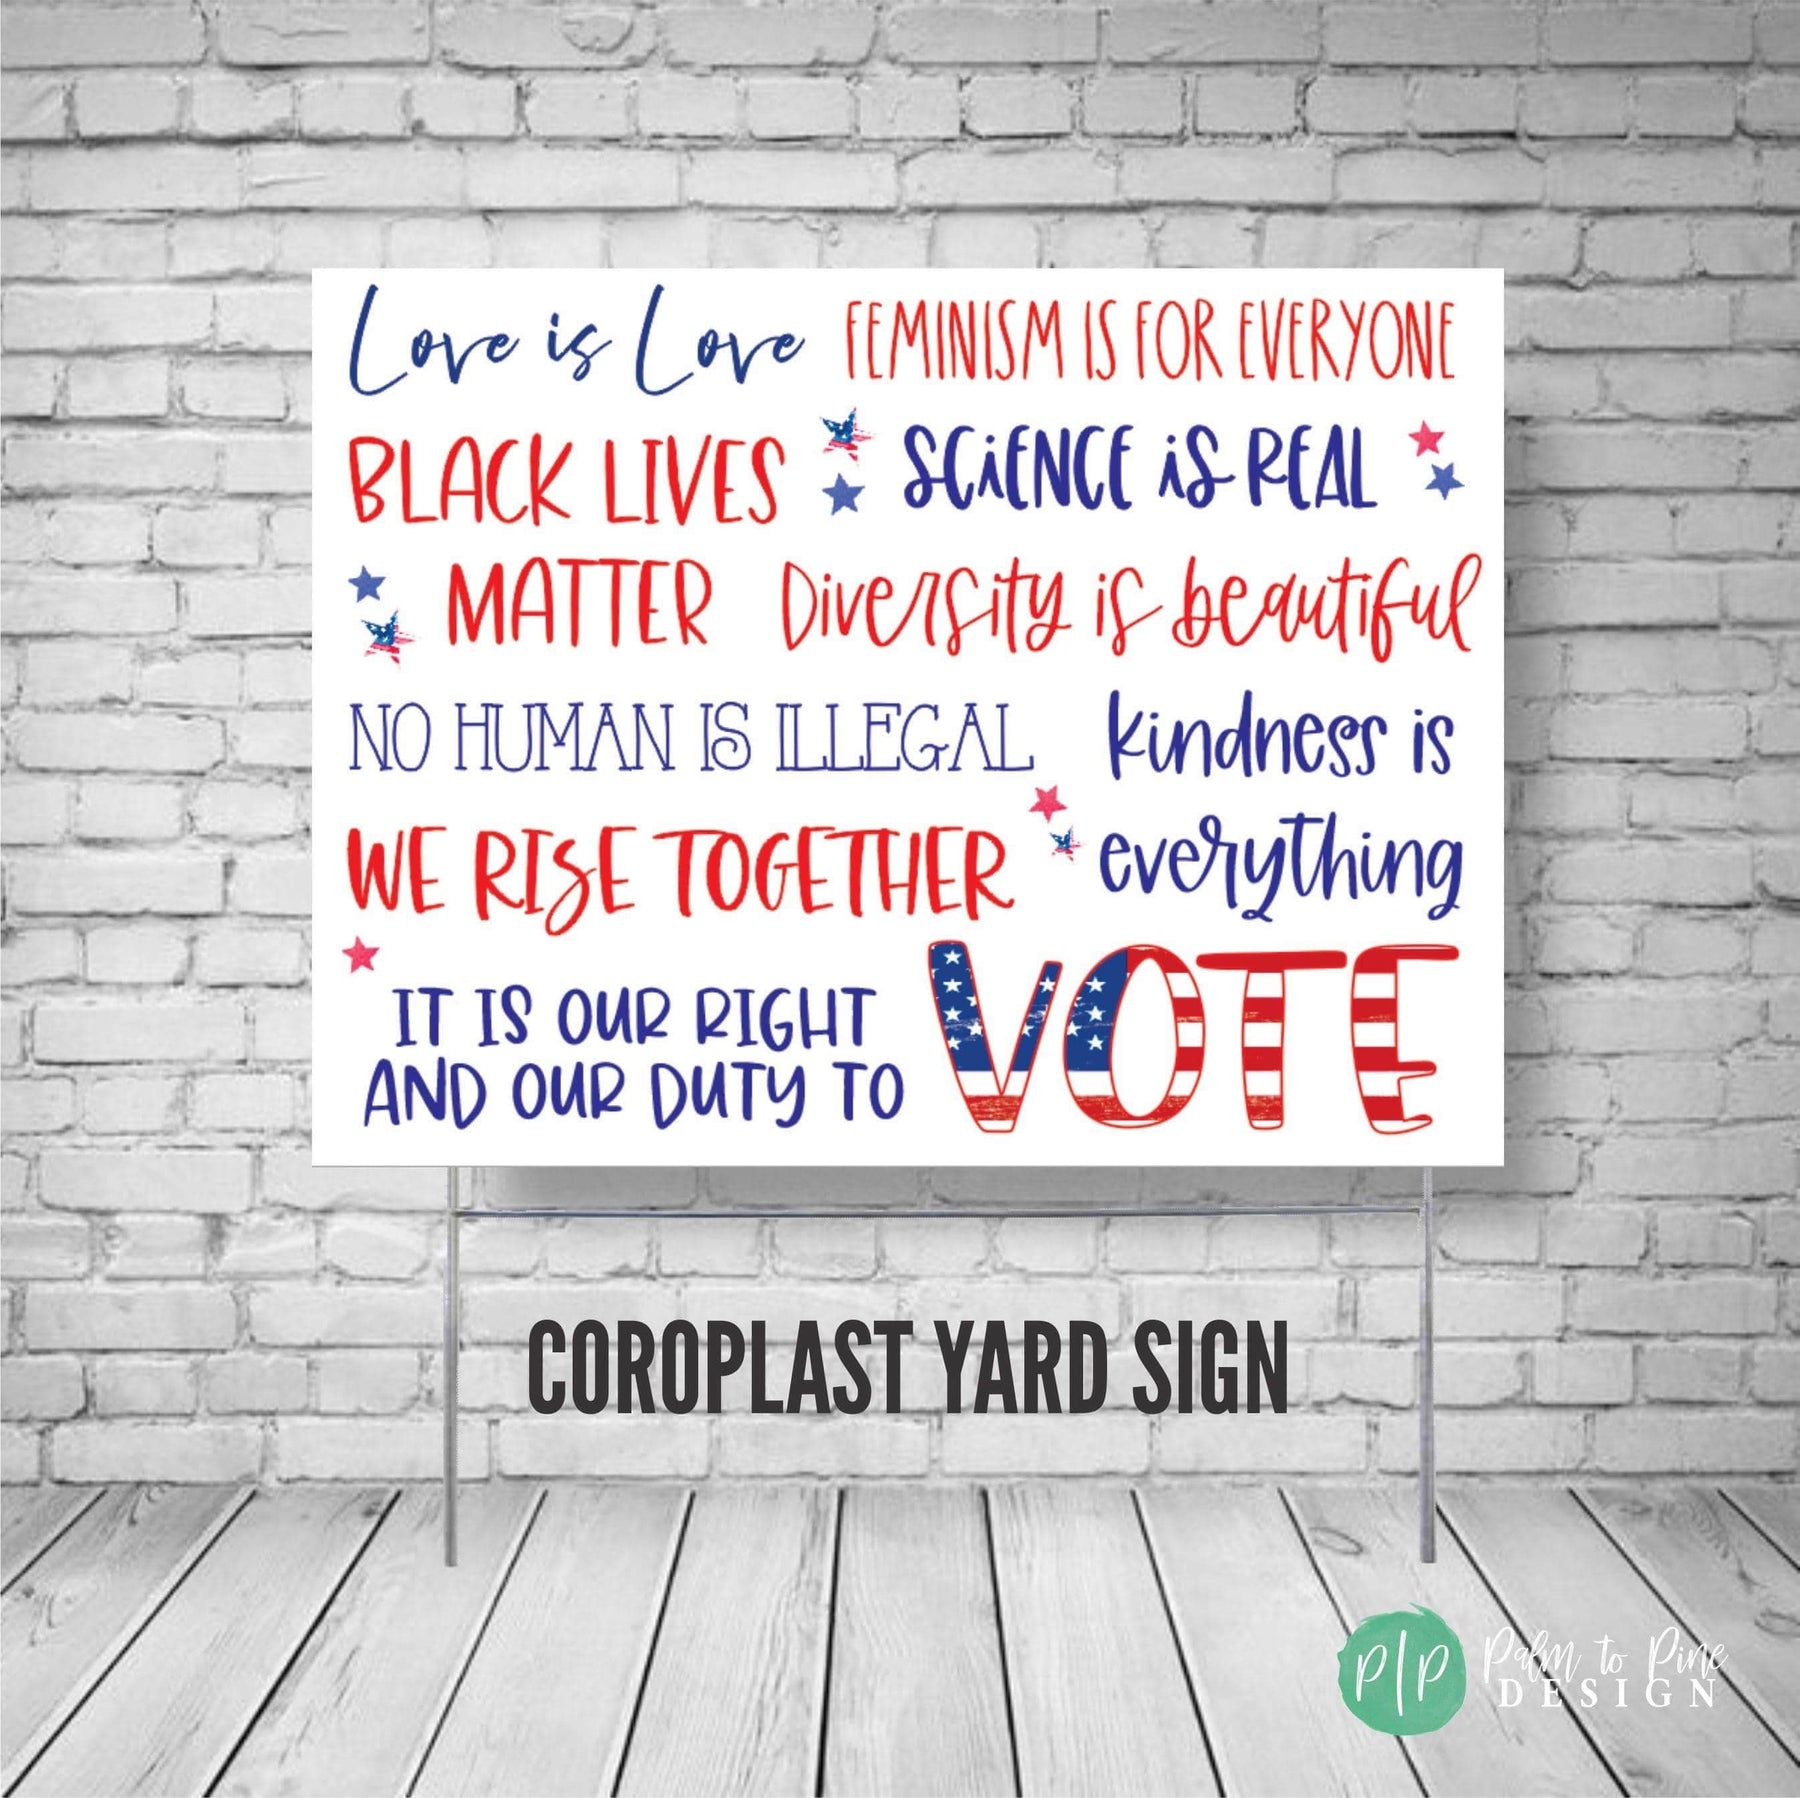 Love is Love FEMINISM IS FOR EVERYONE
BLACK LIVES SCiENCE iS REAL
MATTER Diversity is beautiful
NO HUMAN IS ILLEGAL kindness is
WE RISE TOGETHER everything
IT IS OUR RIGHT
AND OUR DUTY TO VOTE
COROPLAST YARD SIGN
P|P Palm to Pine
DESIGN